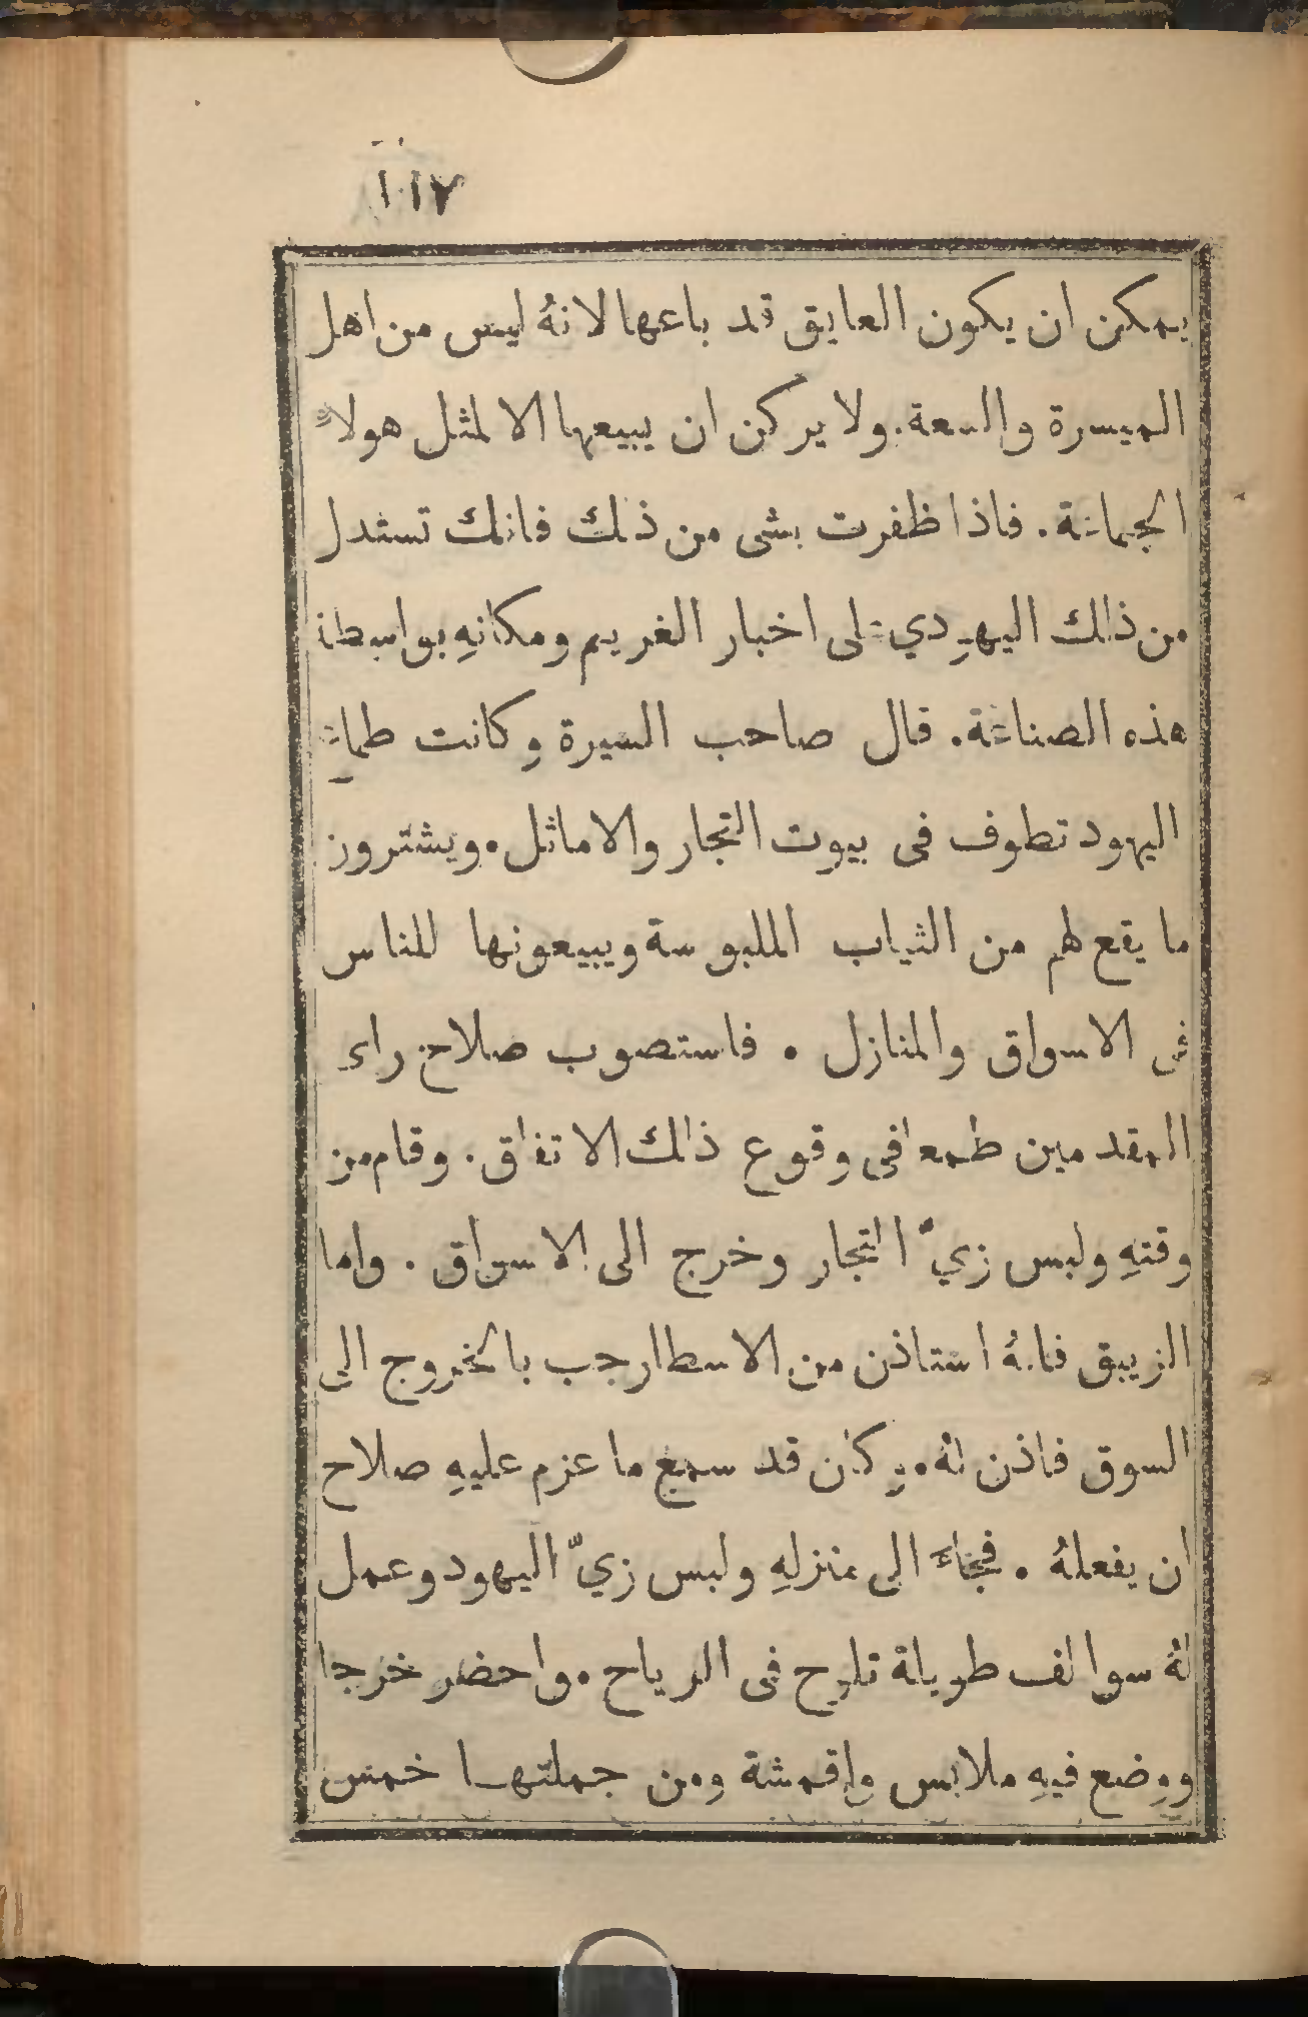 ١١٧
يمكن ان يكون العايق قد باعها لانهُ ليس من اهل
الميسرة والسعة. ولا يركن ان يبيعها الا لمثل هولاءِ
الجماعة. فاذا ظفرت بشى من ذلك فانك تستدل
من ذلك اليهودي على اخبار الغريم ومكانهِ بواسطة
هذه الصناعة. قال صاحب السيرة وكانت طماعة
اليهود تطوف فى بيوت التجار والاماثل. ويشترون
ما يقع لهم من الثياب الملبوسة ويبيعونها للناس
فى الاسواق والمنازل. فاستصوب صلاح راء
المقدمين طمعا فى وقوع ذلك الاتفاق. وقام من
وقتهِ ولبس زيّ التجار وخرج الى الاسواق. واما
الزيبق فانهُ استاذن من الاسطا رجب بالخروج الى
السوق فاذن لهُ. وكان قد سمع ما عزم عليهِ صلاح
ان يفعلهُ. فجاءَ الى منزلهِ ولبس زيّ اليهود وعمل
لهُ سوالف طويلة تلوح فى الرياح. واحضر خرجا
ووضع فيهِ ملابس واقمشة ومن جملتها خمس